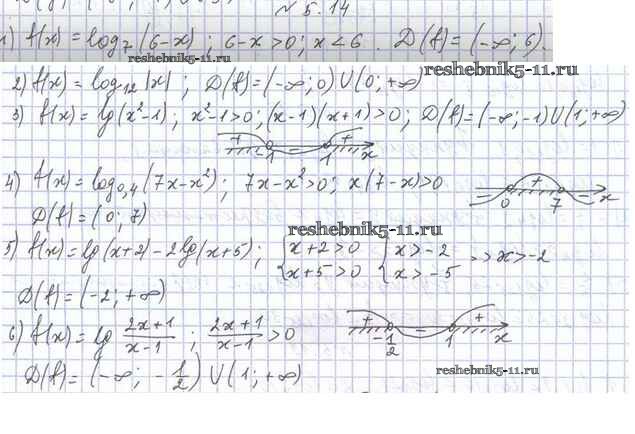 № 5.14
1) f(x) = log₇(6-x); 6-x>0; x<6. D(f) = (-∞; 6).
reshebnik5-11.ru
2) f(x) = log₁₂|x|; D(f) = (-∞; 0)∪(0; +∞)
reshebnik5-11.ru
3) f(x) = lg(x²-1); x²-1>0; (x-1)(x+1)>0; D(f) = (-∞; -1)∪(1; +∞)
+ -1 - 1 + x
4) f(x) = log₀,₄(7x-x²); 7x-x²>0; x(7-x)>0
- 0 + 7 - x
D(f) = (0; 7)
reshebnik5-11.ru
5) f(x) = lg(x+2) - 2lg(x+5); {x+2>0 {x>-2 => x>-2
{x+5>0 {x>-5
D(f) = (-2; +∞)
6) f(x) = lg (2x+1)/(x-1); (2x+1)/(x-1) > 0
+ -1/2 - 1 + x
D(f) = (-∞; -1/2)∪(1; +∞)
reshebnik5-11.ru